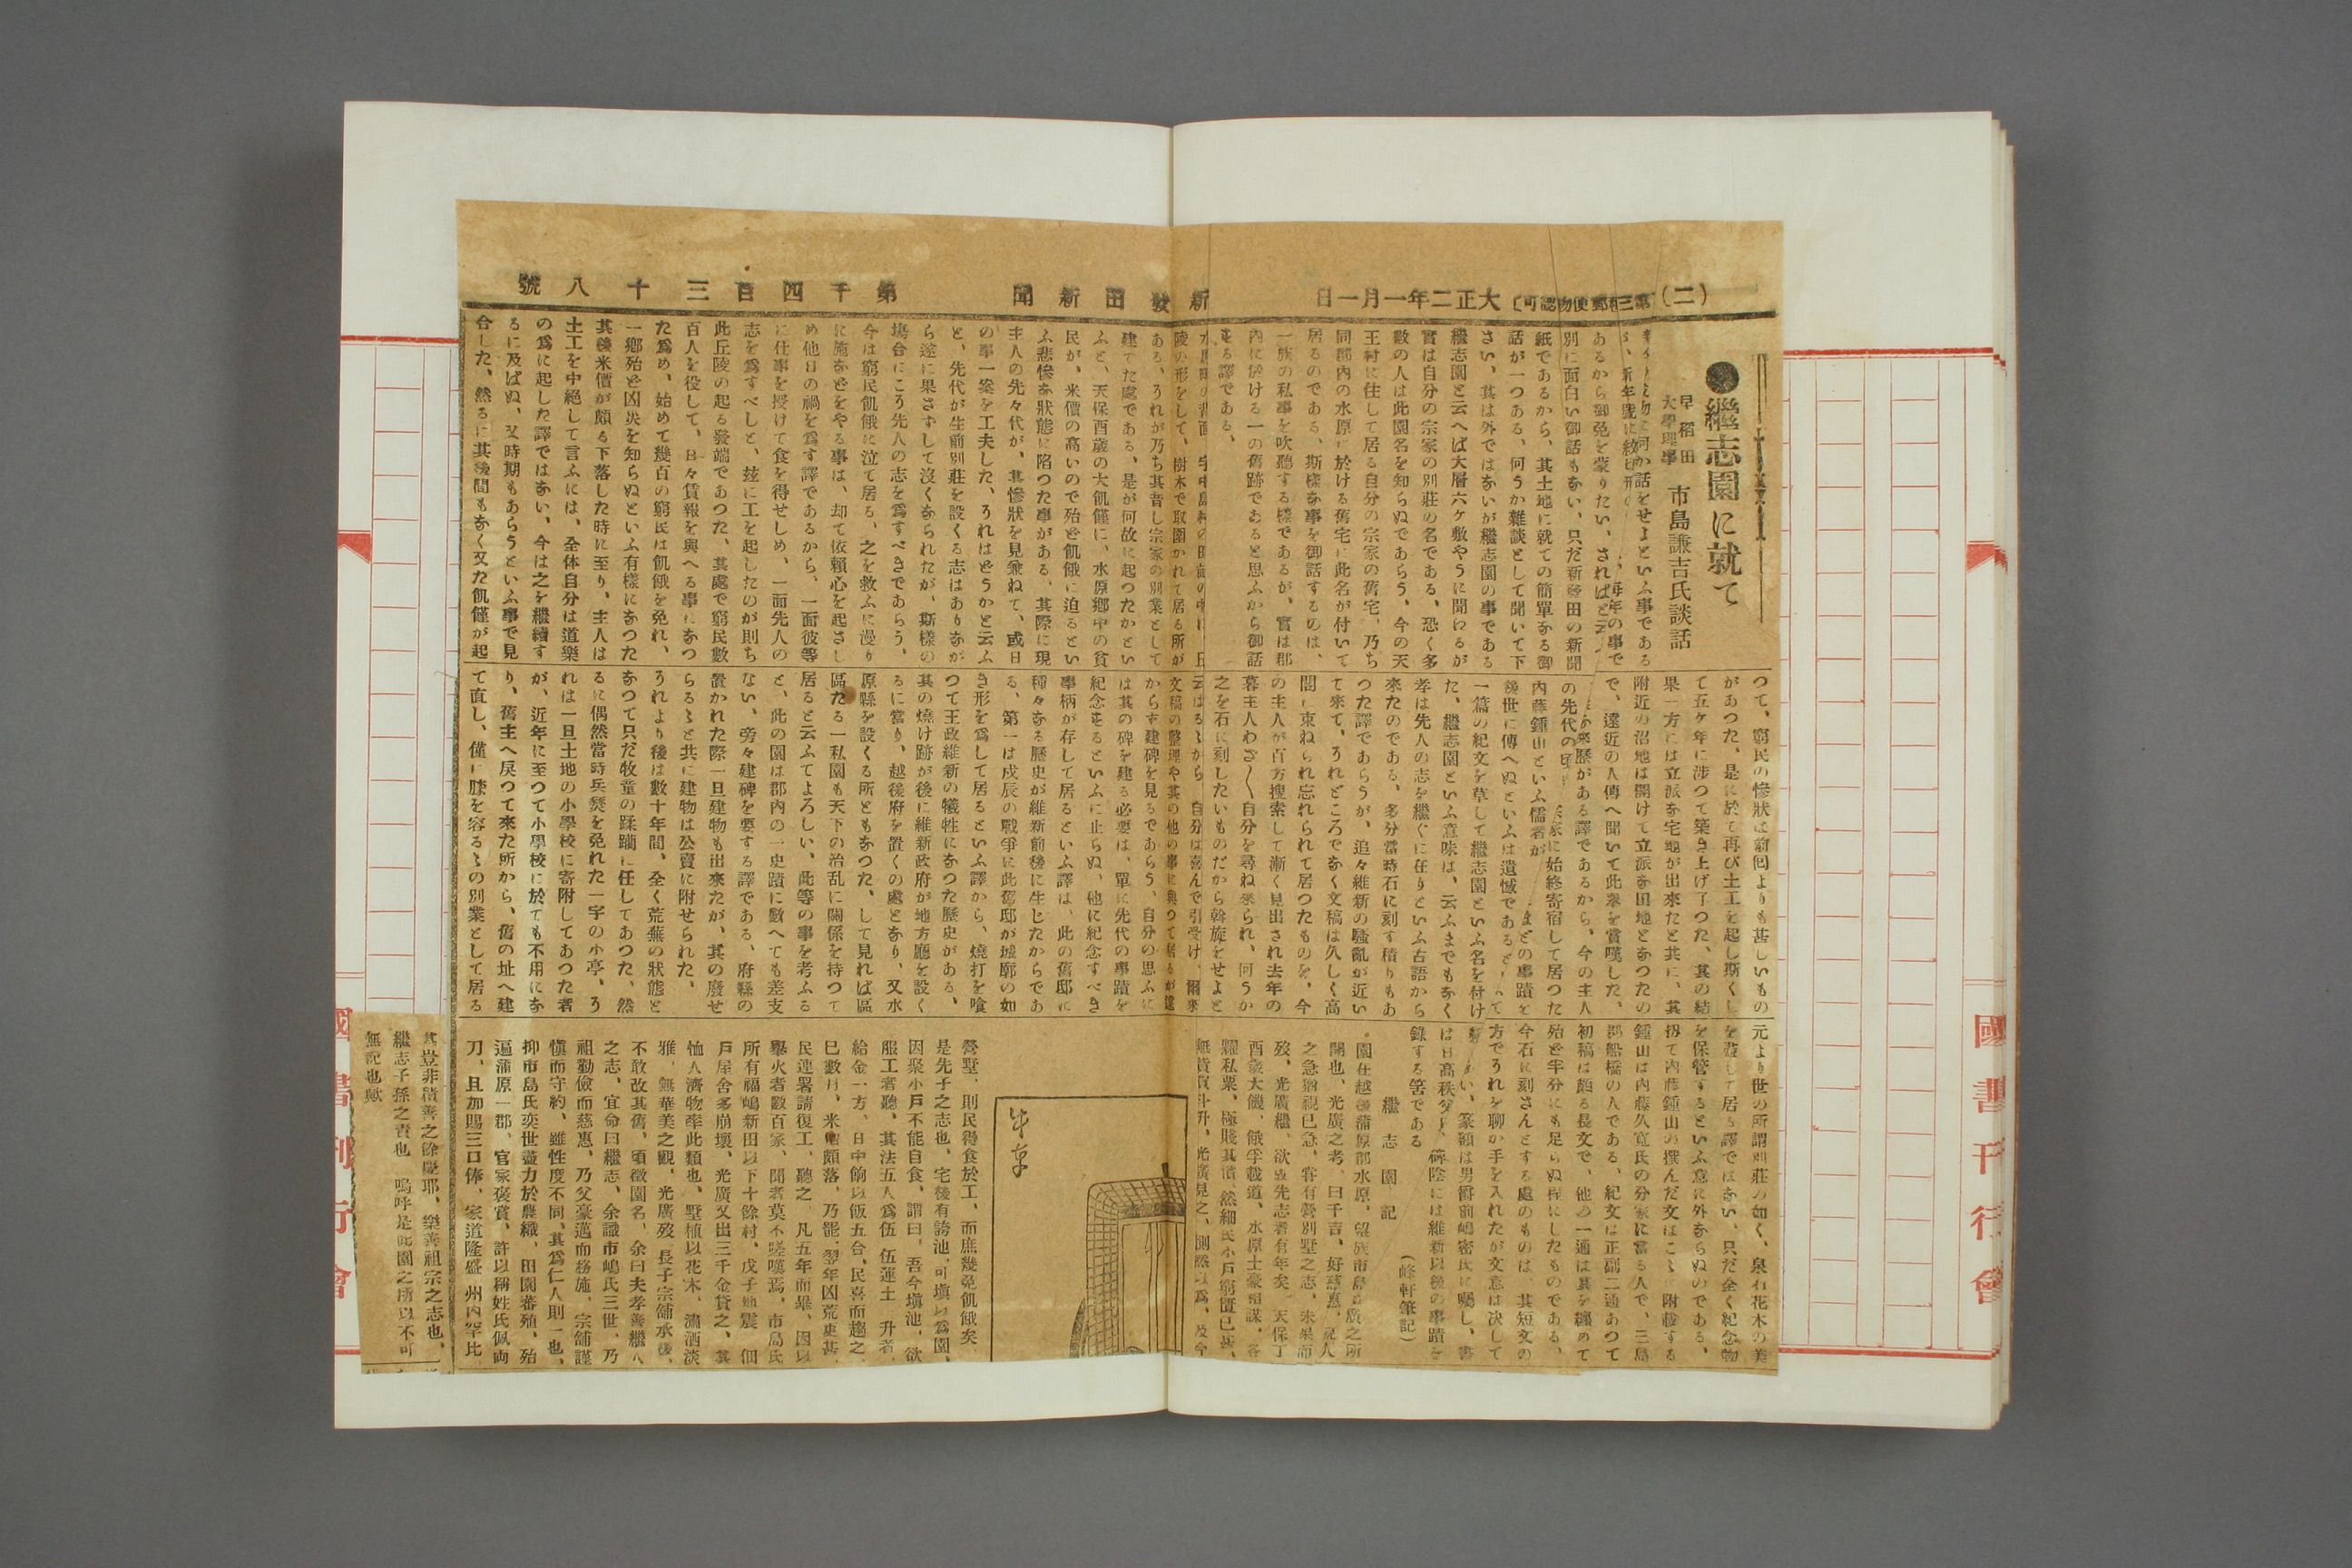 (二)
〔第三種郵便物認可〕
大正二年一月一日
新發田新聞
第千四百三十八號
●繼志園に就て
早稻田
大學理事
市島謙吉氏談話
何か話をせよといふ事である
が、新年號に
毎年の事で
あるから御免を蒙りたい、さればと云
別に面白い御話もない、只だ新發田の新聞
紙であるから、其土地に就ての簡單なる御
話が一つある、何うか雜談として聞いて下
さい、其は外ではないが繼志園の事である
繼志園と云へば大層六ケ敷やうに聞わるが
實は自分の宗家の別莊の名である、恐く多
數の人は此園名を知らぬであらう、今の天
王村に住して居る自分の宗家の舊宅、乃ち
同郡内の水原に於ける舊宅に此名が付いて
居るのである、斯樣な事を御話するのは、
一族の私事を吹聽する樣であるが、實は郡
内に於ける一の舊跡であると思ふから御話
をる譯である、
陵の形をして、樹木で取圍かれて居る所が
ある、うれが乃ち其昔し宗家の別業として
建てた處である、是が何故に起つたかとい
ふと、天保酉歲の大飢饉に、水原鄕中の貧
民が、米價の高いので殆ど飢餓に迫るとい
ふ悲慘な狀態に陷つた事がある、其際に現
主人の先々代が、其慘狀を見兼ねて、或日
の事一案を工夫した、うれはどうかと云ふ
と、先代が生前別莊を設くる志はありなが
ら遂に果さずして沒くなられたが、斯樣の
塲合にこう先人の志を爲すべきであらう、
今は窮民飢餓に泣て居る、之を救ふに漫り
に施などをやる事は、却て依賴心を起さし
め他日の禍を爲す譯であるから、一面彼等
に仕事を授けて食を得せしめ、一面先人の
志を爲すべしと、玆に工を起したのが則ち
此丘陵の起る發端であつた、其處で窮民數
百人を役して、日々賃報を與へる事になつ
た爲め、始めて幾百の窮民は飢餓を免れ、
一鄕殆ど凶災を知らぬといふ有樣になつた
其後米價が頗る下落した時に至り、主人は
土工を中絕して言ふには、全体自分は道樂
の爲に起した譯ではない、今は之を繼續す
るに及ばぬ、又時期もあらうといふ事で見
合した、然るに其後間もなく又た飢饉が起
つて、窮民の慘狀は前回よりも甚しいもの
があつた、是に於て再び土工を起し斯くし
て五ケ年に涉つて築き上げ了つた、其の結
果一方には立派な宅地が出來たと共に、其
附近の沼地は開けて立派な田地となつたの
で、遠近の人傳へ聞いて此擧を賞嘆した、
來歷がある譯であるから、今の主人
の先代の頃
家に始終寄宿して居つた
内藤鍾山といふ儒者が
どの事蹟を
後世に傳へぬといふは遺憾である
一篇の紀文を草して繼志園といふ名を付け
た、繼志園といふ意味は、云ふまでもなく
孝は先人の志を繼ぐに在りといふ古語から
來たのである、多分當時石に刻す積りもあ
つた譯であらうが、追々維新の騷亂が近い
て來て、うれどころでなく文稿は久しく高
閣に束ねられ忘れられて居つたものを、今
の主人が百方搜索して漸く見出され去年の
暮主人わざ〱自分を尋ね來られ、何うか
之を石に刻したいものだから斡旋をせよと
云はるゝから、自分は喜んで引受け、爾來
文稿の整理や其の他の事に與つて居るが遠
からす建碑を見るであらう、自分の思ふに
は其の碑を建る必要は、單に先代の事蹟を
紀念をるといふに止らぬ、他に紀念すべき
事柄が存して居るといふ譯は、此の舊邸に
種々なる歷史が維新前後に生じたからであ
る、第一は戊辰の戰爭に此舊邸が城廓の如
き形を爲して居るといふ譯から、燒打を喰
つて王政維新の犧牲になつた歷史がある、
其の燒け跡が後に維新政府が地方廳を設く
るに當り、越後府を置くの處となり、又水
原縣を設くる所ともなつた、して見れば區
區たる一私園も天下の治乱に關係を持つて
居ると云ふてよろしい、此等の事を考ふる
と、此の園は郡内の一史蹟に數へても差支
ない、旁々建碑を要する譯である、府縣の
置かれた際一旦建物も出來たが、其の廢せ
らるゝと共に建物は公賣に附せられた、
うれより後は數十年間、全く荒蕪の狀態と
なつて只だ牧童の蹂躪に任してあつた、然
るに偶然當時兵燹を免れた一宇の小亭、う
れは一旦土地の小學校に寄附してあつた者
が、近年に至つて小學校に於ても不用にな
り、舊主へ戾つて來た所から、舊の址へ建
て直し、僅に膝を容るゝの別業として居る
元より世の所謂別莊の如く、泉石花木の美
を盡して居る譯ではない、只だ全く紀念物
を保管するといふ意に外ならぬのである、
扨て内藤鍾山の撰んだ文はこゝに附載する
鍾山は内藤久寬氏の分家に當る人で、三島
郡船橋の人である、紀文は正副二通あつて
初稿は頗る長文で、他の一通は其を纏めて
殆ど半分にも足らぬ程にしたものである、
今石に刻さんとする處のものは、其短文の
方でうれを聊か手を入れたが文意は决して
い、篆額は男爵前嶋密氏に囑し、書
は日高秩父
碑陰には維新以後の事蹟を
錄する筈である
(峰軒筆記)
繼志園記
園在越後蒲原郡水原、望族市島光廣之所
開也、光廣之考、曰千吉、好慈惠、
之急猶視已急、甞有營別墅之志、未果而
歿、光廣繼、欲成先志者有年矣、天保丁
酉歲大饑、餓孚載道、水原士豪相謀、各
糶私粟、極賤其價、然細民小戶窮匱已甚、
無貲買斗升、光廣見之、惻然以爲、及今
營墅、則民得食於工、而庶幾免飢餓矣、
是先子之志也、宅後有誇池、可塡以爲園、
因聚小戶不能自食、謂曰、吾今塡池、欲
服工者聽、其法五人爲伍、伍運土一升者、
給金一方、日中餉以飯五合、民喜而趨之、
已數月、米價頗落、乃罷、翌年凶荒更甚、
民連署請復工、聽之、凡五年而畢、因以
擧火者數百家、聞者莫不嗟嘆焉、市島氏
所有福嶋新田以下十餘村、戊子地震、佃
戶屋舍多崩壞、光廣又出三千金貸之、其
恤人濟物率此類也、墅植以花木、瀟洒淡
雅、無華美之觀、光廣歿、長子宗舖承後、
不敢改其舊、頃徵園名、余曰夫孝善繼人
之志、宜命曰繼志、余識市嶋氏三世、乃
祖勤儉而慈惠、乃父豪邁而務施、宗舖謹
愼而守約、雖性度不同、其爲仁人則一也、
抑市島氏奕世盡力於農織、田園蕃殖、殆
逼蒲原一郡、官家褒賞、許以稱姓氏佩両
刀、且加賜三口俸、家道隆盛、州内罕比、
其豈非積善之餘慶耶、樂善祖宗之志也、
繼志子孫之責也、嗚呼是此園之所以不可
無記也歟
國書刊行會
國書刊行會